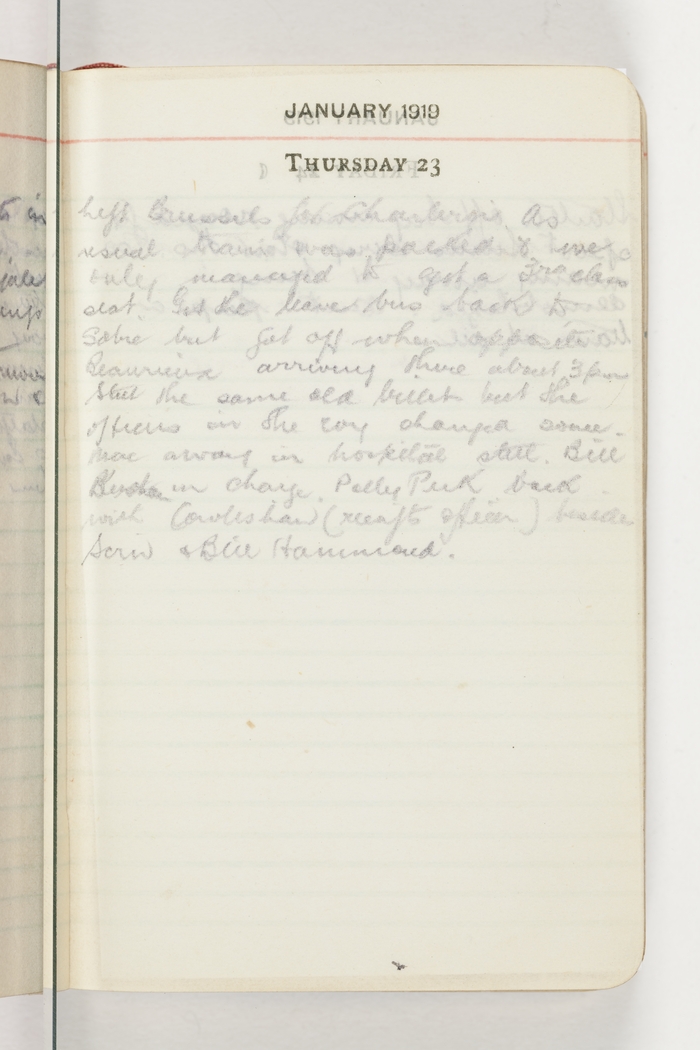 JANUARY 1919
THURSDAY 23
Left Brussels for As
usual train was packed & we
only managed to get a 3rd class
seat. Got the leave bus back to
Sobre but got off when opposite
Beaurieux arriving there about 3pm
Still the same old billets but the
officers in the coy changed some.
Mac away in hospital still. Bill
in charge. Polly Peck back
with (recafts officer) besides
& Bill Hammond.